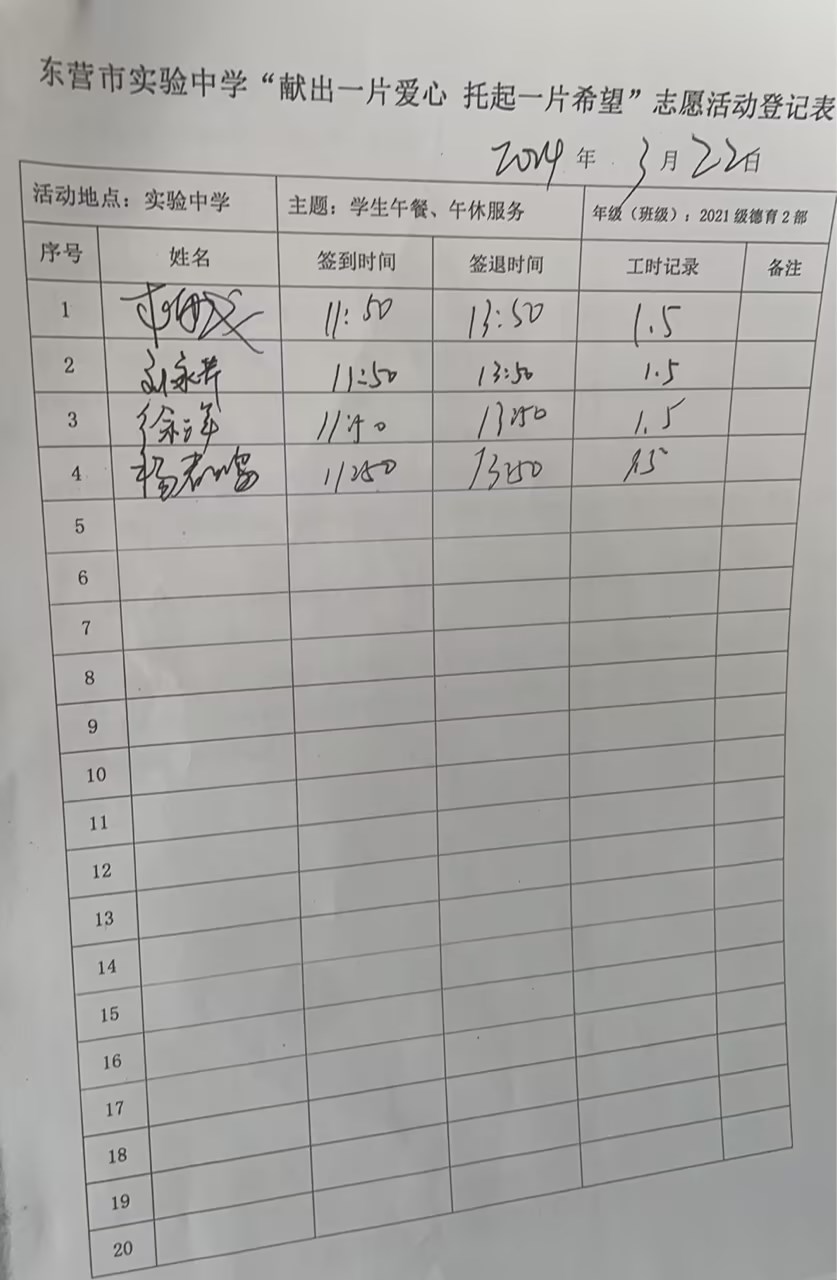 东营市实验中学“献出一片爱心 托起一片希望”志愿活动登记表
2024年 3月22日
活动地点：实验中学 主题：学生午餐、午休服务 年级（班级）：2021级德育2部
序号 姓名 签到时间 签退时间 工时记录 备注
1 11:50 13:50 1.5
2 刘永芹 11:50 13:50 1.5
3 11:50 13:50 1.5
4 11:50 13:50 1.5
5
6
7
8
9
10
11
12
13
14
15
16
17
18
19
20